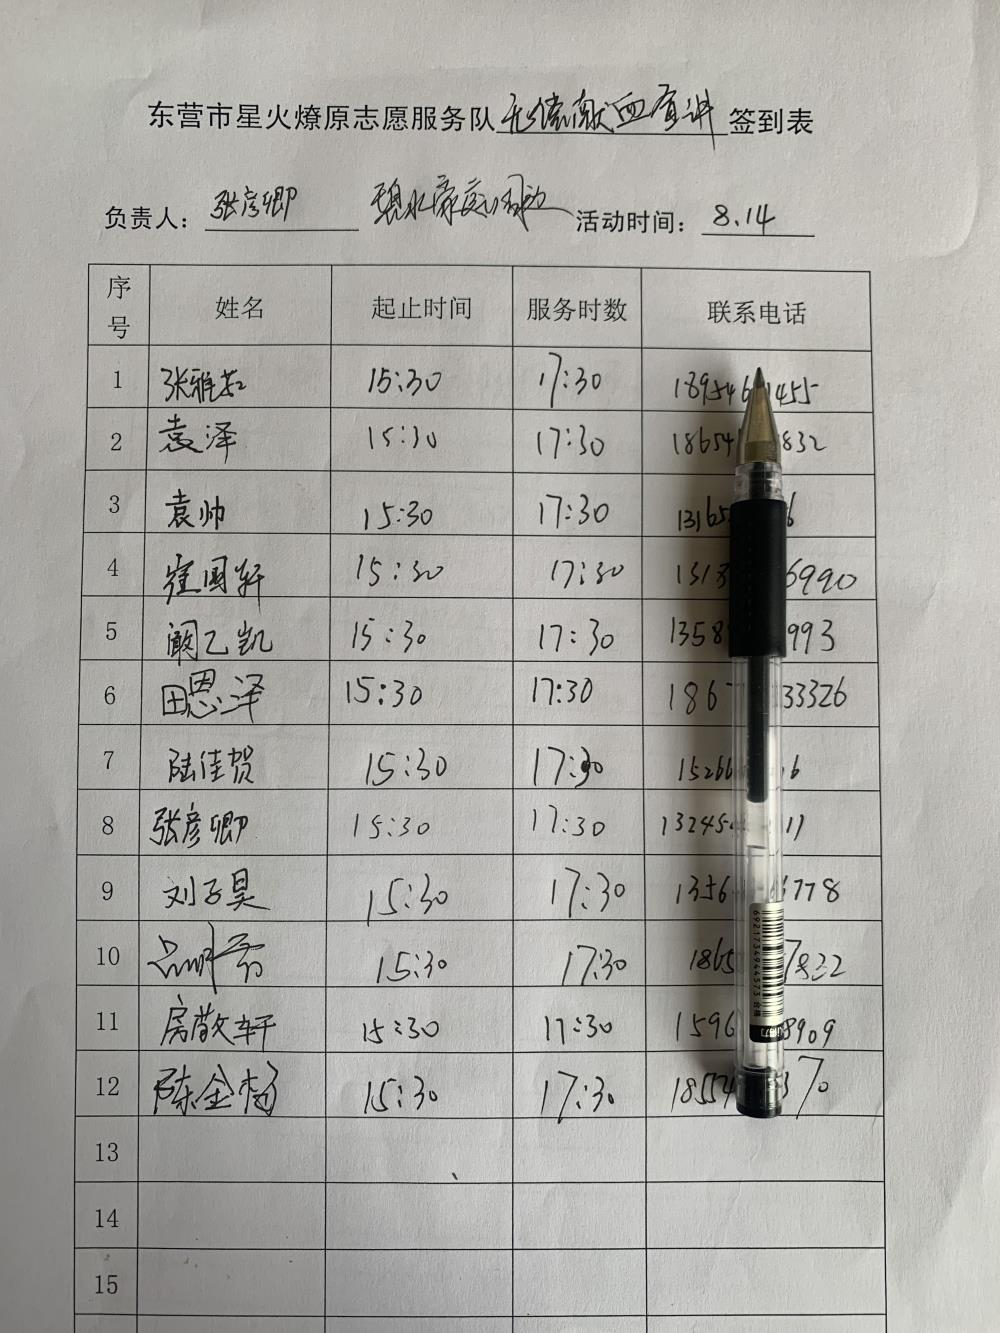 东营市星火燎原志愿服务队无偿献血宣讲签到表
负责人：张彦卿 碧水康庭 活动时间：8.14
序号 姓名 起止时间 服务时数 联系电话
1 张雅茹 15:30 17:30 189546 1455
2 袁泽 15:30 17:30 18654 832
3 袁帅 15:30 17:30 13165 6
4 崔国轩 15:30 17:30 1513 6990
5 阚乙凯 15:30 17:30 1358 993
6 田恩泽 15:30 17:30 1867 33326
7 陆佳贺 15:30 17:30 15266 6
8 张彦卿 15:30 17:30 132454 11
9 刘子昊 15:30 17:30 1356 6778
10 15:30 17:30 1865 7832
11 房敬轩 15:30 17:30 1596 8909
12 陈金杨 15:30 17:30 18554 370
13
14
15
6921734964573